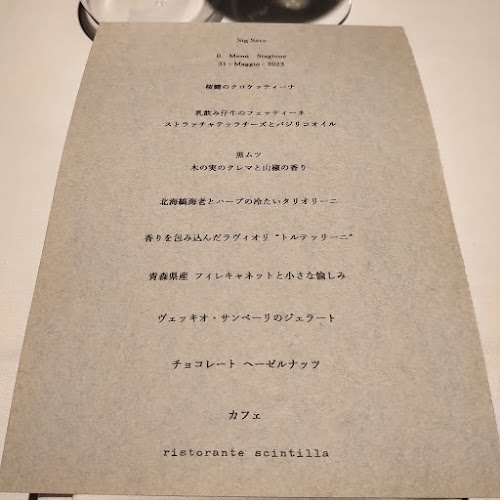 Sig Sato
Il Menu Stagione
31・Maggio・2023
桜鱒のクロケッティーナ
乳飲み仔牛のフェッティーネ
ストラッチャテッラチーズとバジリコオイル
黒ムツ
木の実のクレマと山椒の香り
北海縞海老とハーブの冷たいタリオリーニ
香りを包み込んだラヴィオリ “トルテッリーニ”
青森県産 フィレキャネットと小さな愉しみ
ヴェッキオ・サンペーリのジェラート
チョコレート ヘーゼルナッツ
カフェ
ristorante scintilla